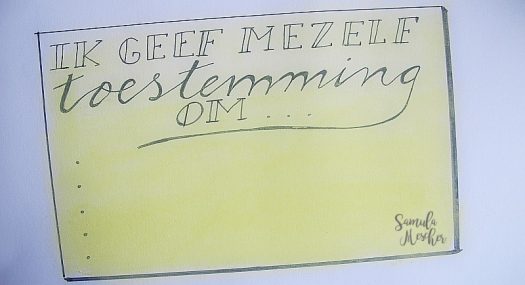 IK GEEF MEZELF
toestemming
OM...
Samula
Mescher